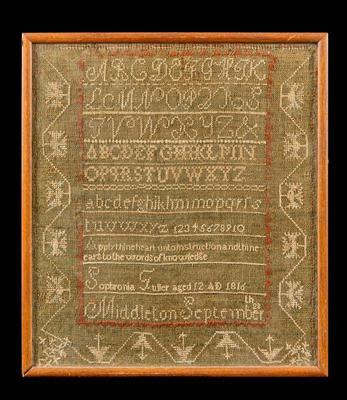 ABCDEFGHIK
LMNOPQRS
TVWXYZ&
ABCDEFGHIKLMN
OPQRSTUVWXYZ
abcdefghiklmnopqrſs
tuvwxyz 12345678910
Apply thine heart unto instruction and thine
ears to the words of knowledge
Sophronia Fuller aged 12 AD 1816
Middleton September 28th